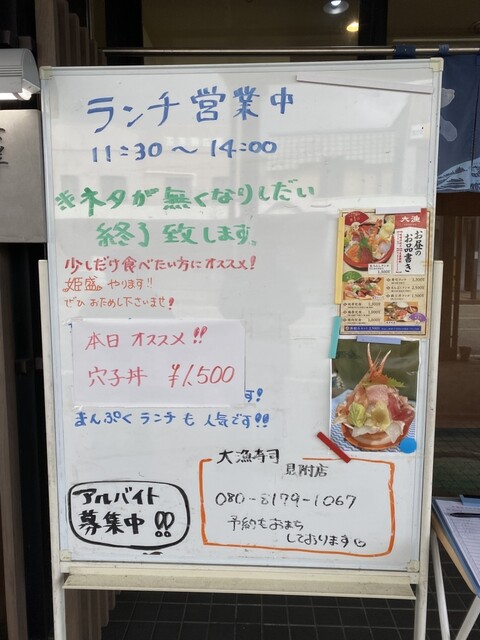 ランチ営業中
11:30～14:00
※ネタが無くなりしだい
終了致します。
少しだけ食べたい方にオススメ!
姫盛やります!!
ぜひおためし下さいませ!
本日オススメ!!
穴子丼 ¥1,500
す!
まんぷくランチも人気です!!
大漁
お昼の
お品書き
大漁寿司
見附店
080-8179-1067
予約もおまち
しております
アルバイト
募集中!!